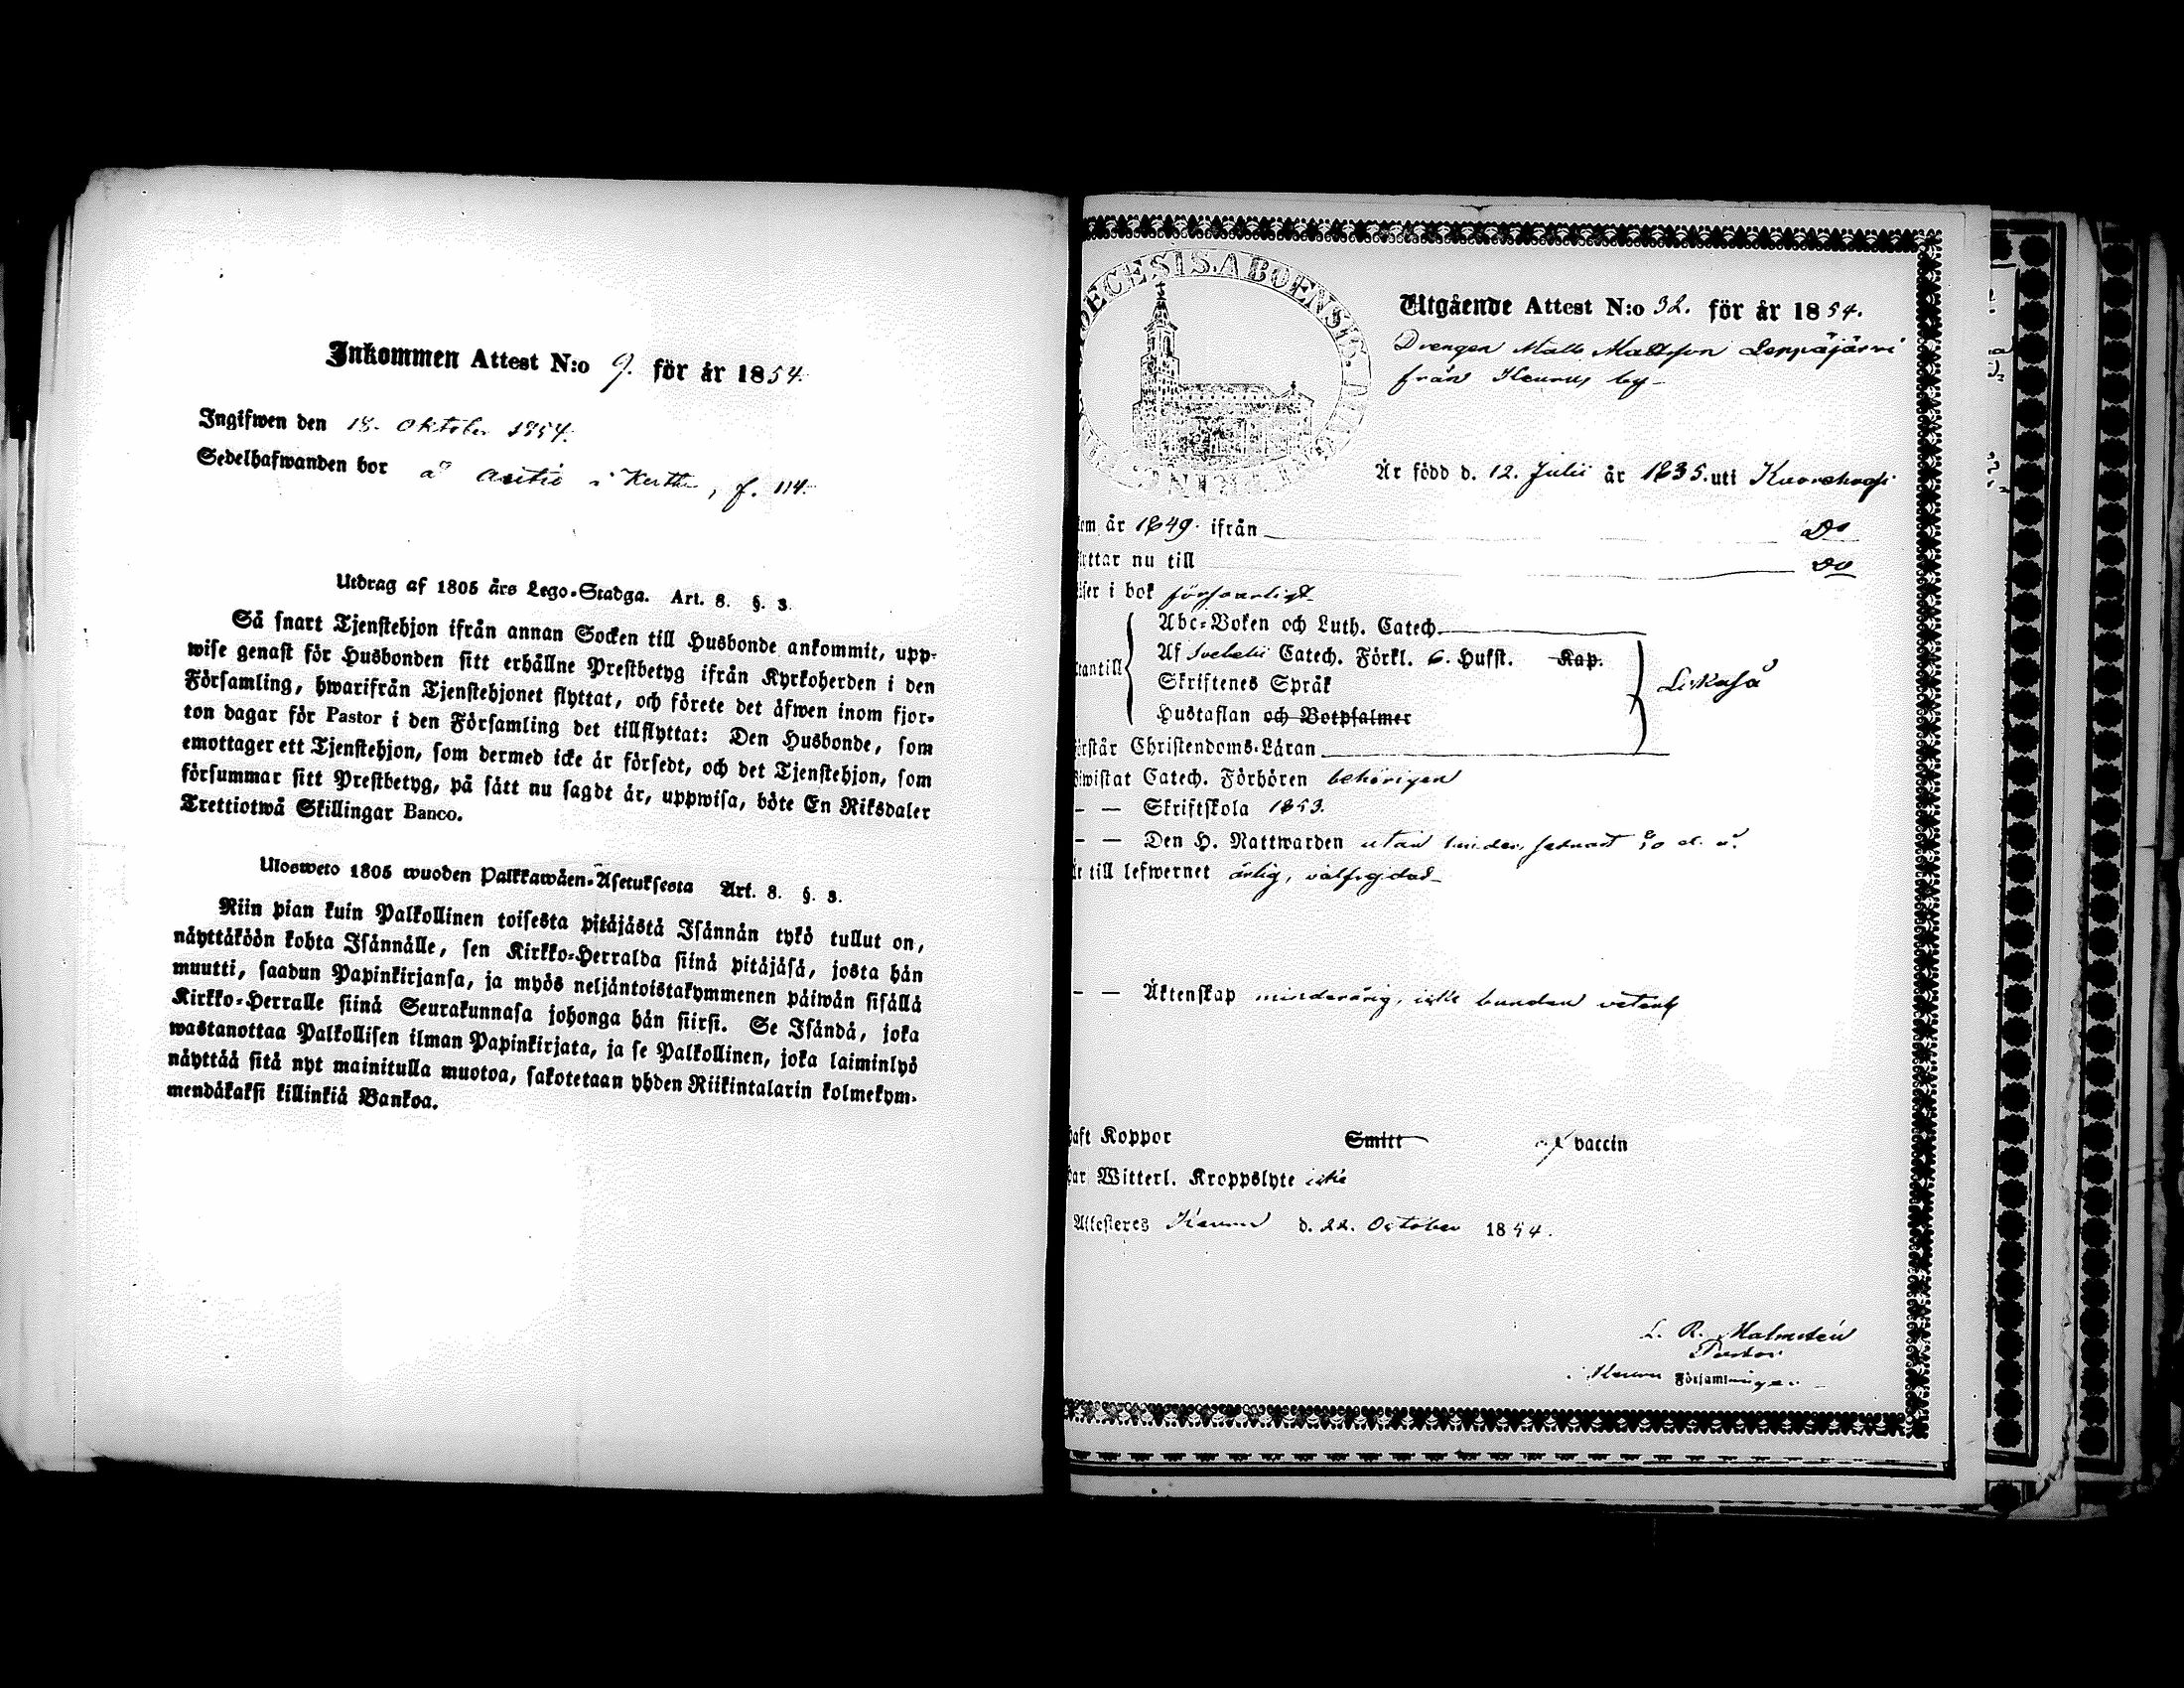 Inkommen Attest N:o 9. för år 1854.
Ingifwen den 18. Oktober 1854.
Sedelhafwanden bor å i f. 114.
Utdrag af 1805 års Lego-Stadga. Art. 8. §. 3.
Så snart Tjenstehjon ifrån annan Socken till Husbonde ankommit, upp-
wise genast för Husbonden sitt erhållne Prestbetyg ifrån Kyrkoherden i den
Församling, hwarifrån Tjenstehjonet flyttat, och förete det äfwen inom fjor-
ton dagar för Pastor i den Församling det tillflyttat: Den Husbonde, som
emottager ett Tjenstehjon, som dermed icke är försedt, och det Tjenstehjon, som
försummar sitt Prestbetyg, på sätt nu sagdt är, uppwisa, böte En Riksdaler
Trettiotwå Skillingar Banco.
Ulosweto 1805 wuoden Palkkawäen-Asetuksesta Art. 8. §. 3.
Niin pian kuin Palkollinen toisesta pitäjästä Isännän tykö tullut on,
näyttäköön kohta Isännälle, sen Kirkko-Herralda siinä pitäjäsä, josta hän
muutti, saadun Papinkirjansa, ja myös neljäntoistakymmenen päiwän sisällä
Kirkko-Herralle siinä Seurakunnasa johonga hän siirsi. Se Isändä, joka
wastanottaa Palkollisen ilman Papinkirjata, ja se Palkollinen, joka laiminlyö
näyttää sitä nyt mainitulla muotoa, sakotetaan yhden Riikintalarin kolmekym-
mendäkaksi killinkiä Bankoa.
DIOECESIS ABOENSIS
Utgående Attest N:o 32. för år 1854.
Drengen Matts Mattsson Leppäjärvi
från Keuru by
Är född d. 12. Julii år 1835. uti
kom år 1849. ifrån Do
flyttar nu till Do
läser i bok försvarligt
Abc-Boken och Luth. Catech.
Af Svebelii Catech. Förkl. 6. Hufst. Kap.
utantill Skriftenes Språk
Hustaflan och Botpsalmer
Förstår Christendoms-Läran
Biwistat Catech. Förhören behörigen
— — Skriftskola 1853.
— — Den H. Nattwarden utan hinder, senast d. å.
Är till lefwernet ärlig, välfrejdad
— — Äktenskap minderårig, icke bunden veterl.
haft Koppor Smitt af vaccin
har Witterl. Kroppslyte icke
Attesteres Keuru d. 22. October 1854.
L. R. Malmstén
Pastor
i Keuru Församlingen